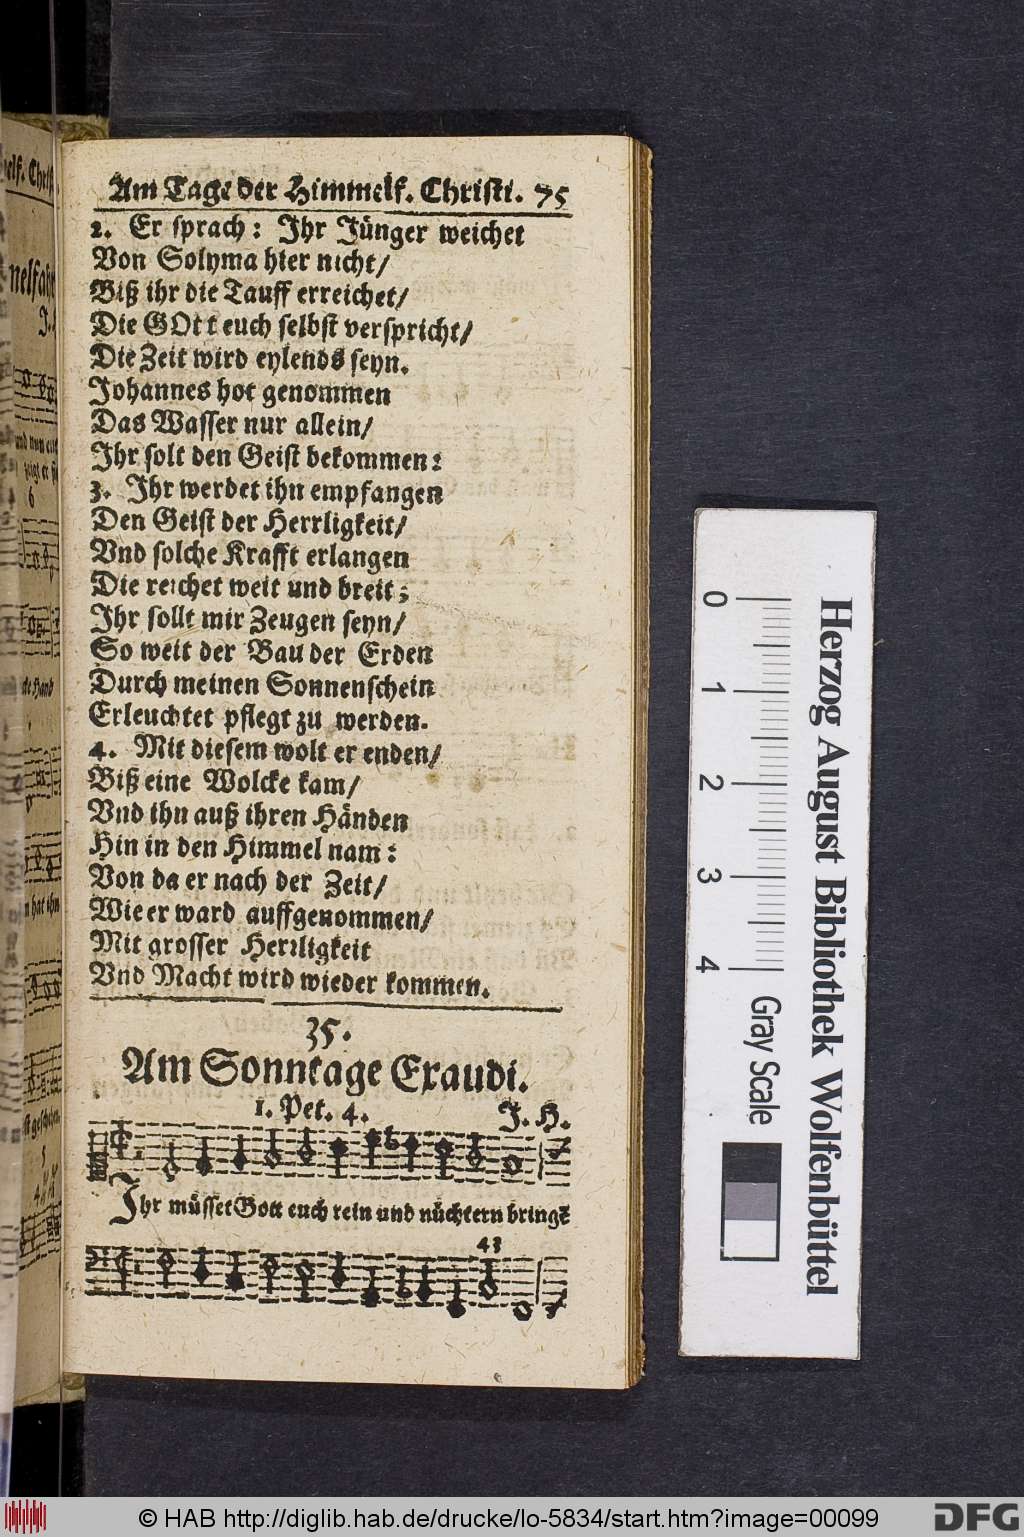 Am Tage der Himmelf. Christi. 75
2. Er sprach: Ihr Jünger weichet
Von Solyma hier nicht/
Biß ihr die Tauff erreichet/
Die GOtt euch selbst verspricht/
Die Zeit wird eylends seyn.
Johannes hot genommen
Das Wasser nur allein/
Ihr solt den Geist bekommen:
3. Ihr werdet ihn empfangen
Den Geist der Herrligkeit/
Vnd solche Krafft erlangen
Die reichet weit und breit;
Ihr sollt mir Zeugen seyn/
So weit der Bau der Erden
Durch meinen Sonnenschein
Erleuchtet pflegt zu werden.
4. Mit diesem wolt er enden/
Biß eine Wolcke kam/
Vnd ihn auß ihren Händen
Hin in den Himmel nam:
Von da er nach der Zeit/
Wie er ward auffgenommen/
Mit grosser Herrligkeit
Vnd Macht wird wieder kommen.
35.
Am Sonntage Exaudi.
1. Pet. 4. J. H.
Ihr müsset Gott euch rein und nüchtern bringẽ
43
0 1 2 3 4
Gray Scale
Herzog August Bibliothek Wolfenbüttel
© HAB http://diglib.hab.de/drucke/lo-5834/start.htm?image=00099
DFG